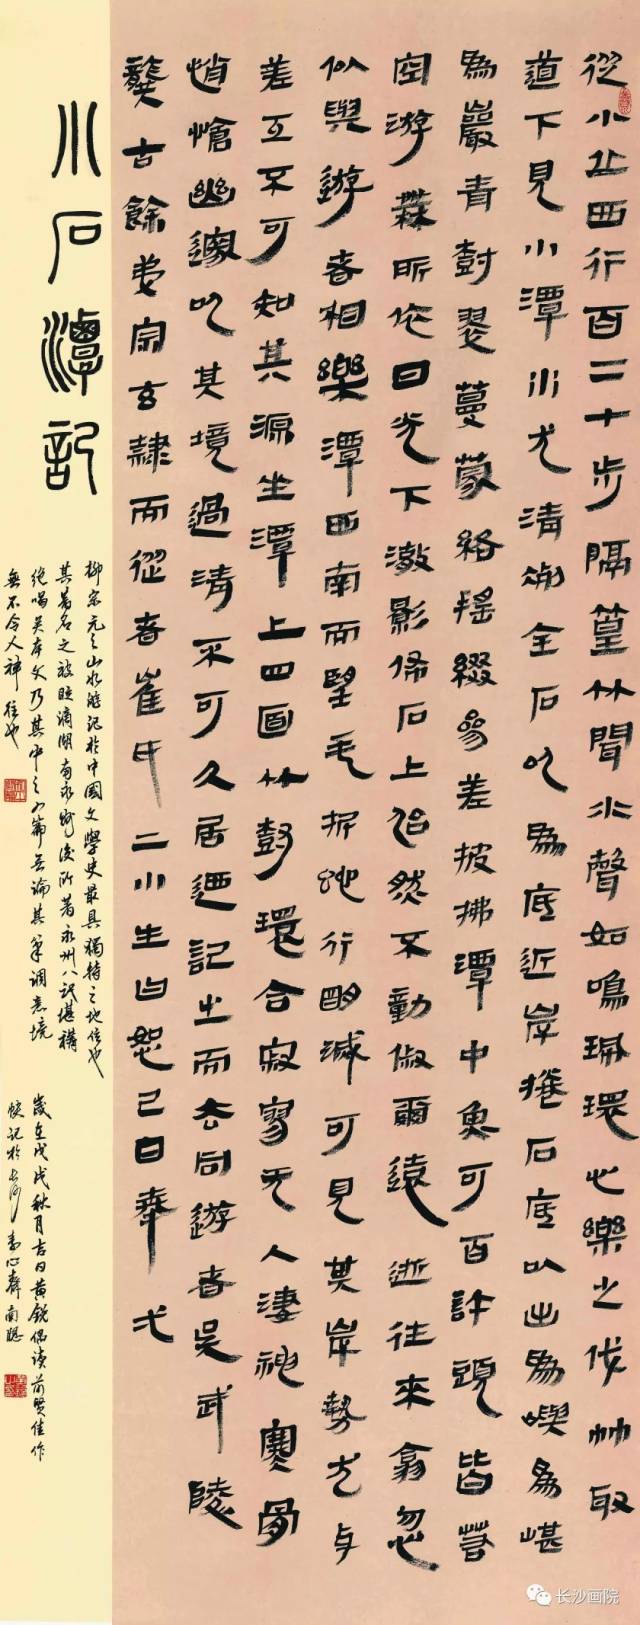 從小丘西行百二十步隔篁竹聞水聲如鳴珮環心樂之伐竹取
道下見小潭水尤清冽全石以為底近岸捲石底以出為嶼為嵁
為巖青樹翠蔓蒙絡搖綴參差披拂潭中魚可百許頭皆若
空游無所依日光下澈影佈石上佁然不動俶爾遠逝往來翕忽
似與遊者相樂潭西南而望斗折蛇行明滅可見其岸勢犬牙
差互不可知其源坐潭上四面竹樹環合寂寥无人淒神寒骨
悄愴幽邃以其境過清不可久居迺記之而去同遊者吳武陵
龔古餘弟宗玄隸而從者崔氏二小生曰恕己曰奉弌
小石潭記
柳宗元之山水遊記於中國文學史最具獨特之地位也
其著名之被貶謫湖南永州後所著永州八記堪稱
絕唱矣本文乃其中之一篇無論其筆調意境
無不令人神往也
歲在戊戌秋月吉日黃銳偶讀前賢佳作
記於長沙素心齋南牕
长沙画院